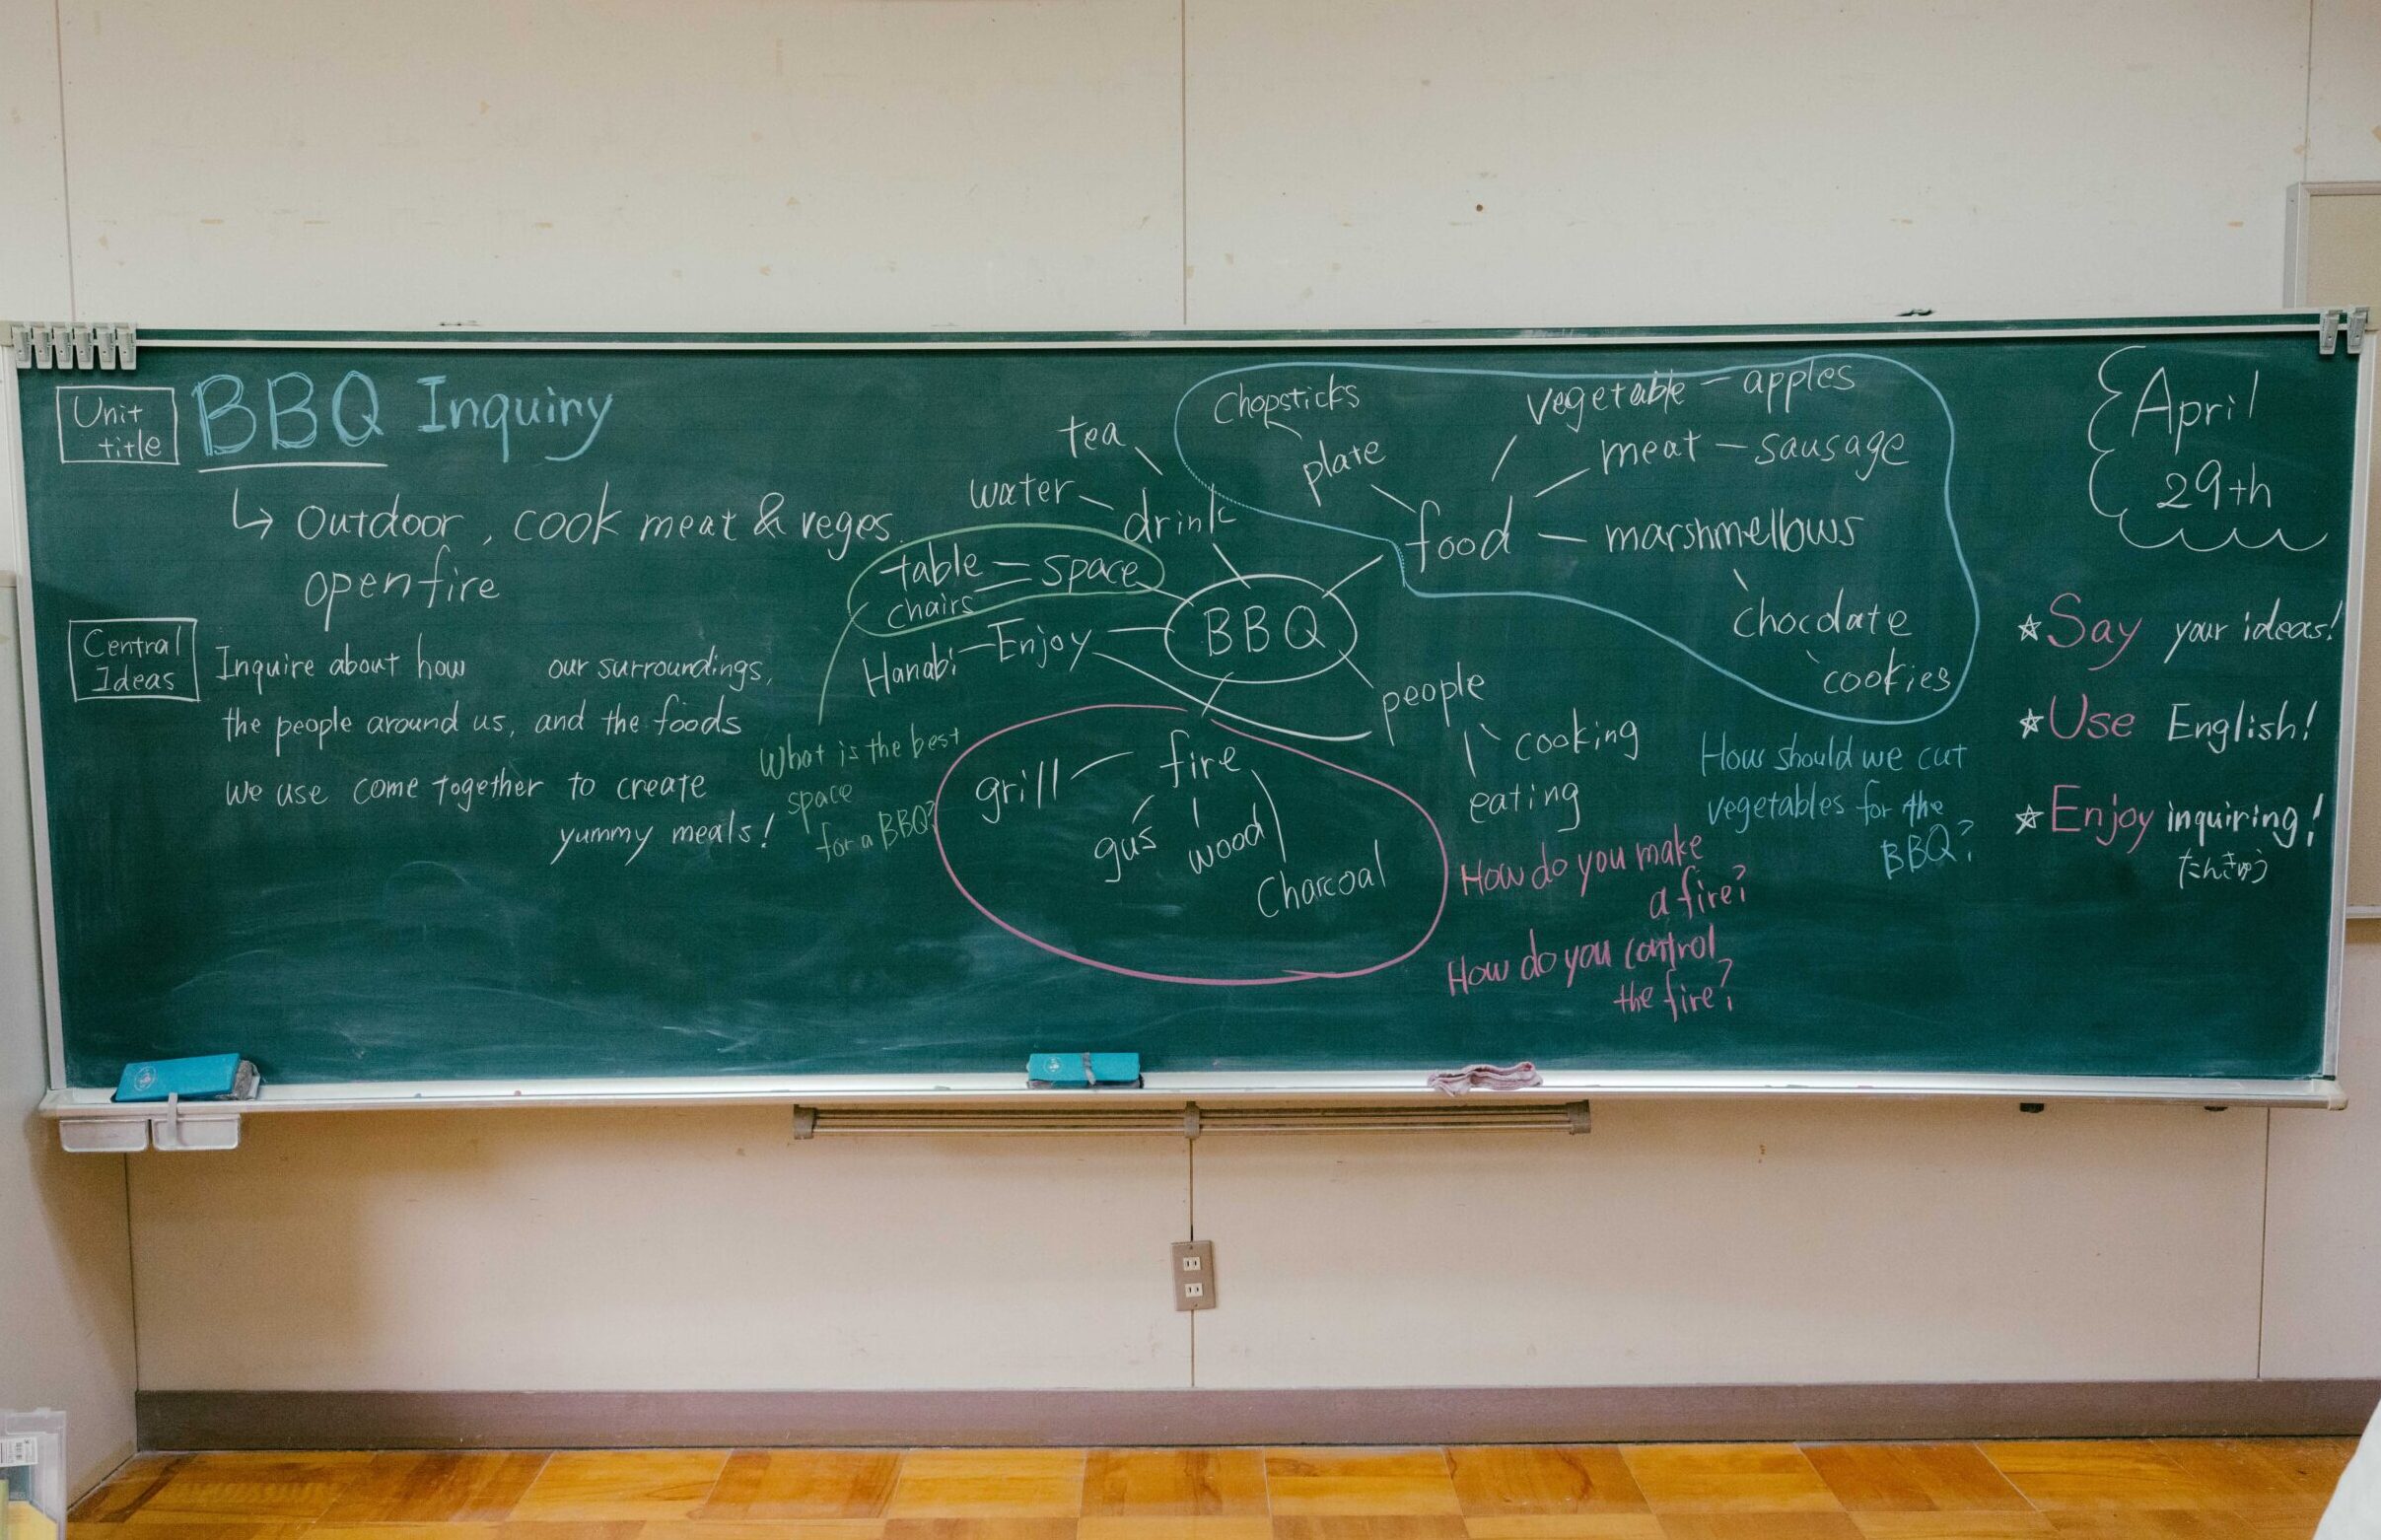 Unit
title
BBQ Inquiry
↳ Outdoor, cook meat & veges.
open fire
Central
Ideas
Inquire about how our surroundings,
the people around us, and the foods
we use come together to create
yummy meals!
tea
water
drink
table
space
chairs
Hanabi
Enjoy
BBQ
What is the best
space
for a BBQ?
Chopsticks
plate
food
vegetable - apples
meat - sausage
marshmellows
chocolate
cookies
people
cooking
eating
grill
fire
gus
wood
Charcoal
How should we cut
vegetables for the
BBQ?
How do you make
a fire?
How do you control
the fire?
April
29th
☆ Say your ideas!
☆ Use English!
☆ Enjoy inquiring!
たんきゅう